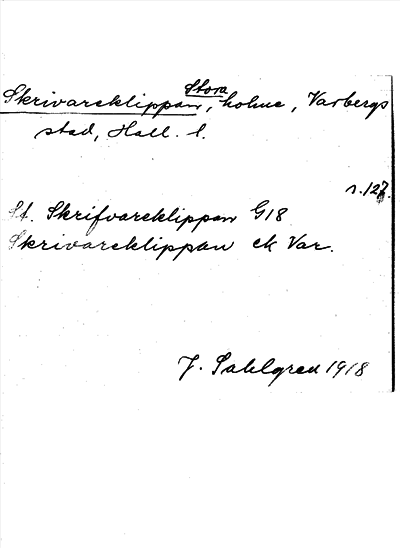 Skrivareklippan, Stora, holme, Varbergs
stad, Hall. l.
s. 127.
St. Skrifvareklippan G18
Skrivareklippan ek Var.
J. Sahlgren 1918